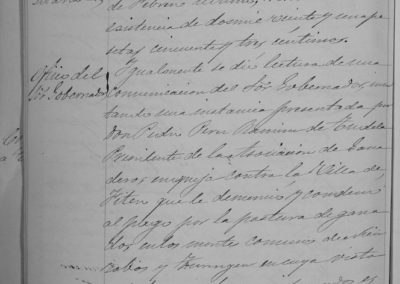 de Febrero
existencia de dosmil veinte y una pe
setas cincuenta y tres céntimos.
Oficio del
Sor Gobernador
Igualmente se dió lectura de una
comunicacion del Sor Gobernador,
tando una instancia presentada por
don Pedro Ramirez de Tudela
Presidente de la Asociacion de Gana
deros en queja contra la Villa de
Fitero que le denunció y condenó
al pago por la pastura de gana
dos en los montes comunes
y en cuya vista